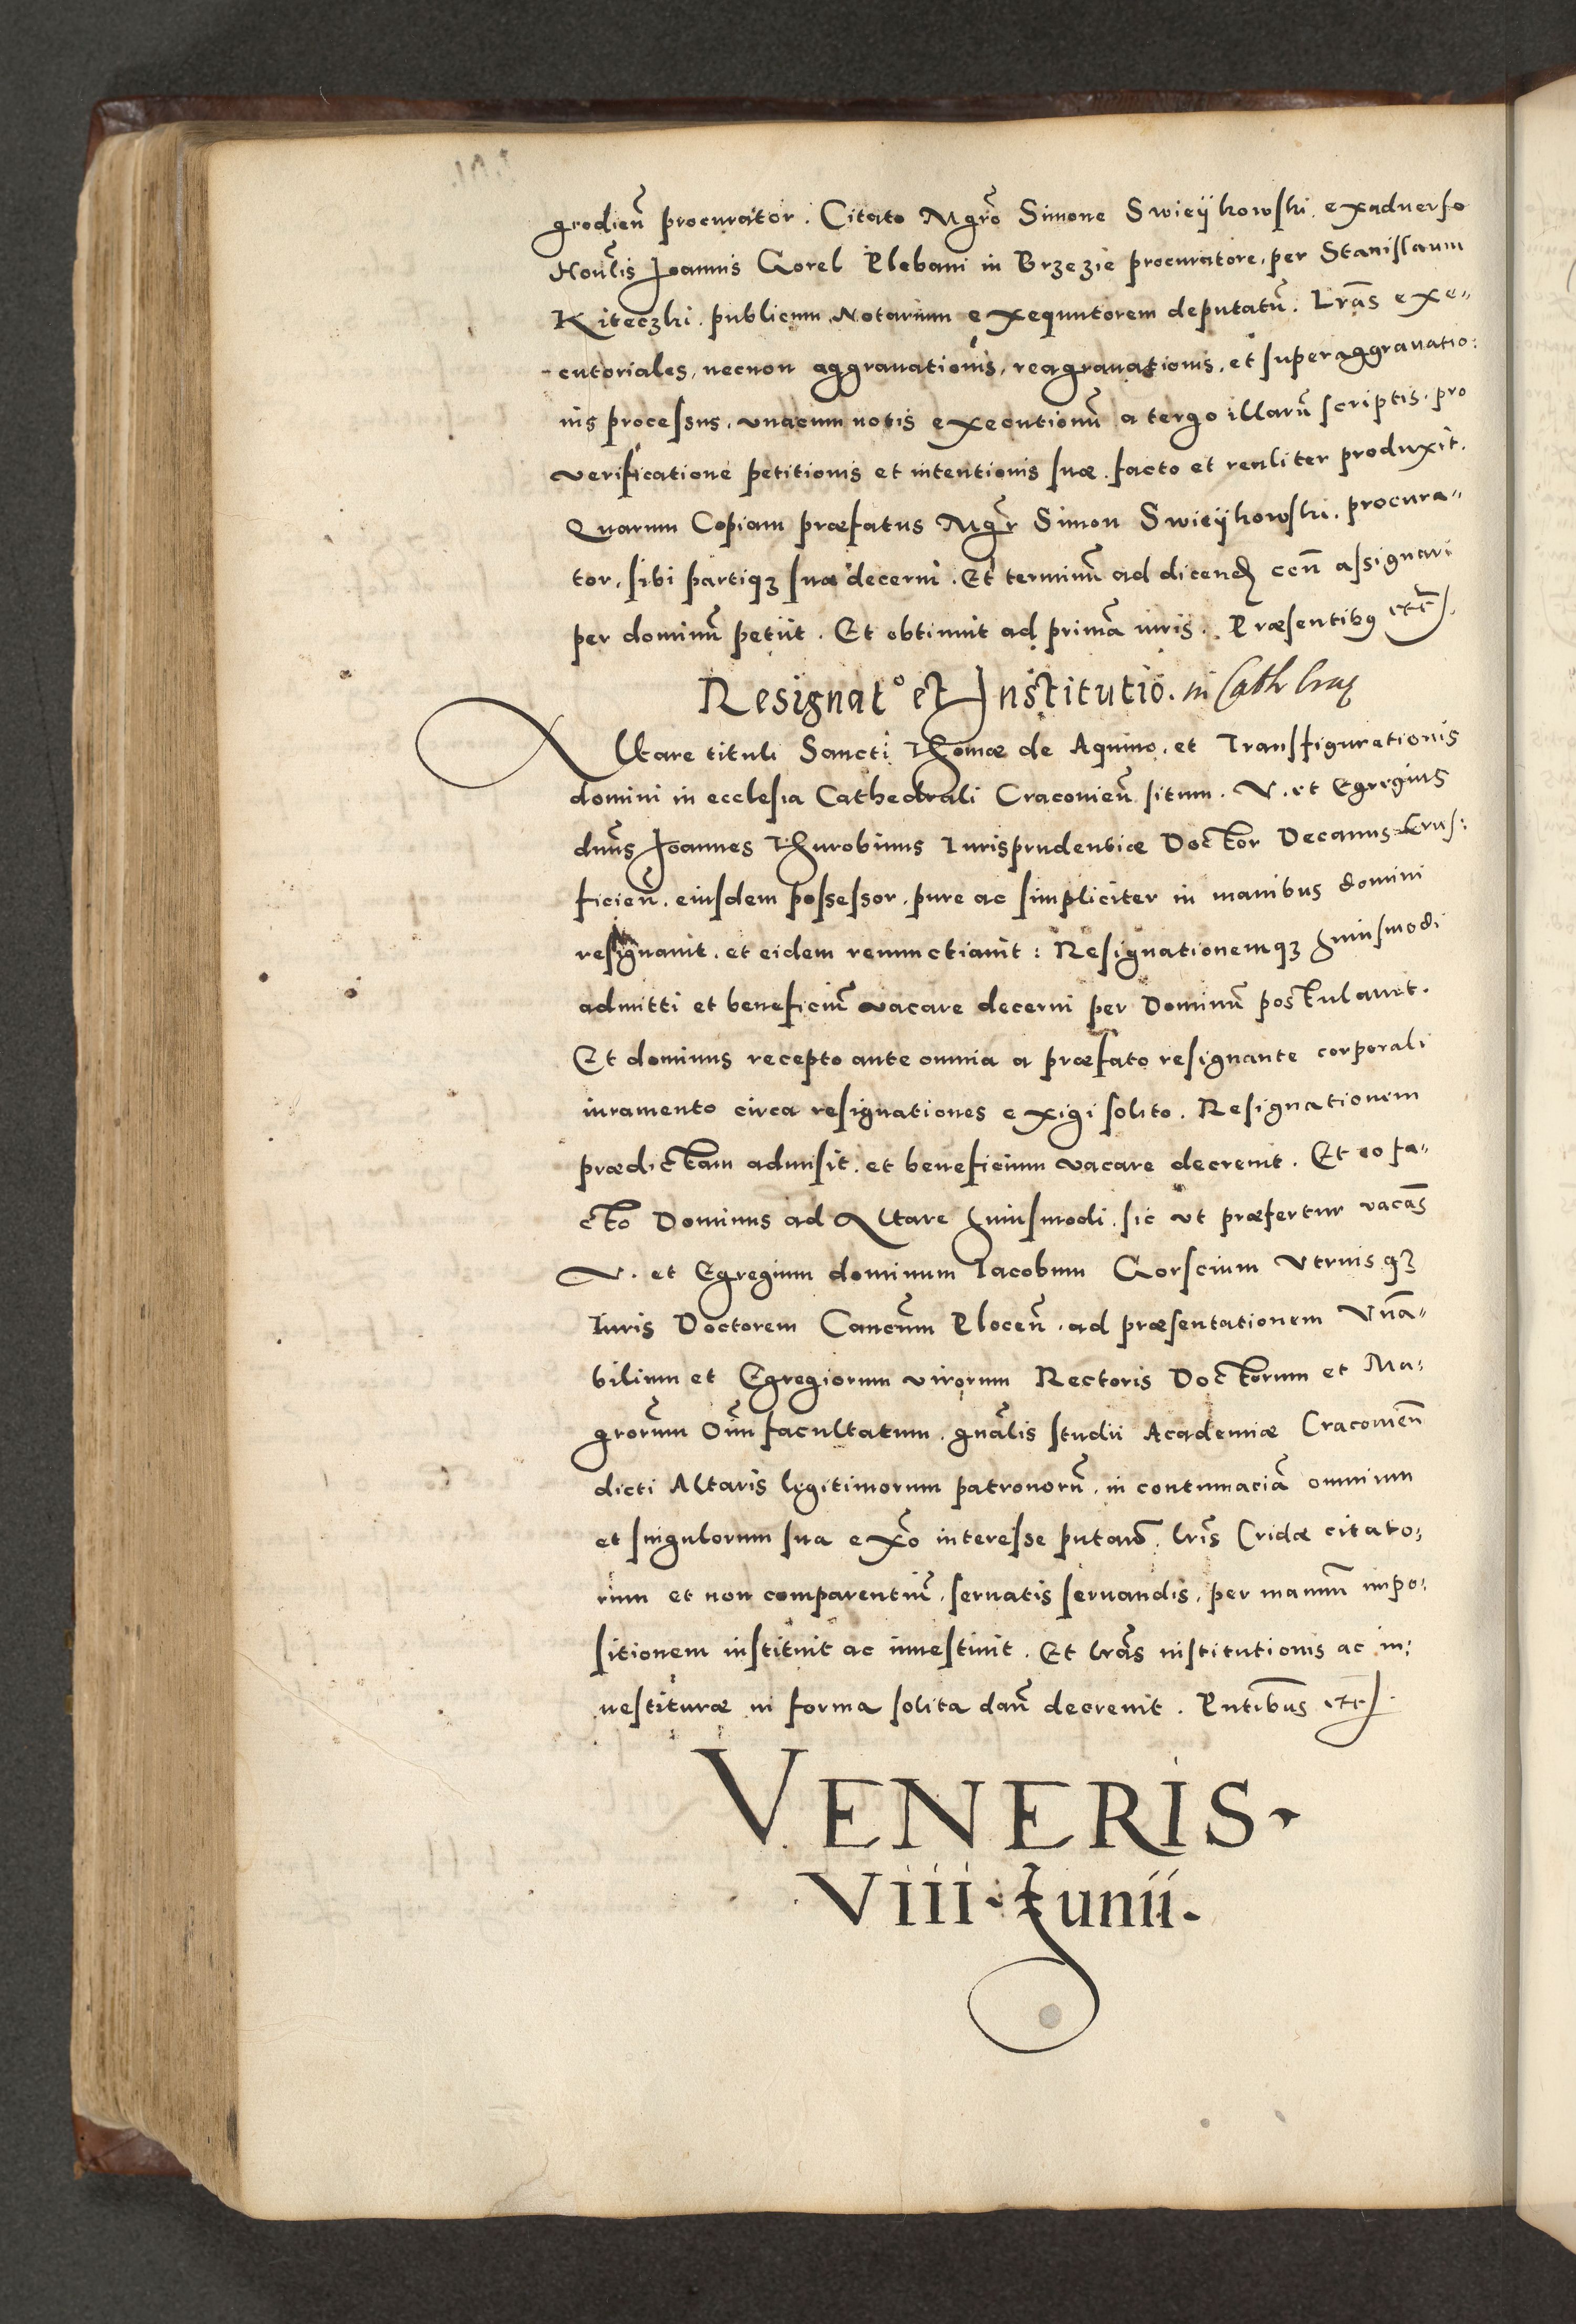 grodieñ procurator. Citato Mgro Simone Swieÿkowski, exaduerso
Honlis Joannis Gorel Plebani in Brzezie procuratore, per Stanislaum
Kiteczki. publicum Notarium exequutorem deputatũ. Lras exe-
cutoriales, necnon aggrauationis, reagrauationis, et superaggrauatio:
nis processus, vnacum notis executionũ a tergo illarũ scriptis. pro
verificatione petitionis et intentionis suæ. facto et realiter produxit.
Quarum Copiam præfatus Mgr Simon Swieÿkowski. procura-
tor, sibi partiqꝫ suæ decerni. Et terminũ ad dicend ccñ assignari
per dominũ petiit. Et obtinuit ad primã iuris. Præsentibꝰ etc.
Resignat° et Institutio. in Cath Crac
Altare tituli Sancti Thomæ de Aquino, et Transfigurationis
domini in ecclesia Cathedrali Cracovieñ situm. V. et Egregius
dnus Joannes Thurobinus Iurisprudentiæ Doctor Decanus Crus:
ficieñ. eiusdem possessor, pure ac simpliciter in manibus domini
resignauit. et eidem renunctiauit: Resignationemqꝫ huiusmodi
admitti et beneficiũ vacare decerni per Dominũ postulauit.
Et dominus recepto ante omnia a præfato resignante corporali
iuramento circa resignationes exigi solito. Resignationem
prædictam admisit. et beneficium vacare decreuit. Et eo fa-
cto Dominus ad Altare huiusmodi, sic vt præfertur vacãs
V. et Egregium dominum Iacobum Gorscium Vtriusqꝫ
Iuris Doctorem Cancum Ploceñ. ad præsentationem Vnã-
bilium et Egregiorum virorum Rectoris Doctorum et Ma:
grorum Oim facultatum. gnalis studii Academiæ Cracovieñ
dicti Altaris legitimorum patronorũ. in contumaciã omnium
et singulorum sua exño interesse putañ. lris Cridæ citato:
rum et non comparentiũ. seruatis seruandis. per manuũ impo:
sitionem instituit ac inuestiuit. Et lras institutionis ac in:
uestituræ in forma solita dañ decreuit. Pntibus etc.
VENERIS.
Viii. Junii.